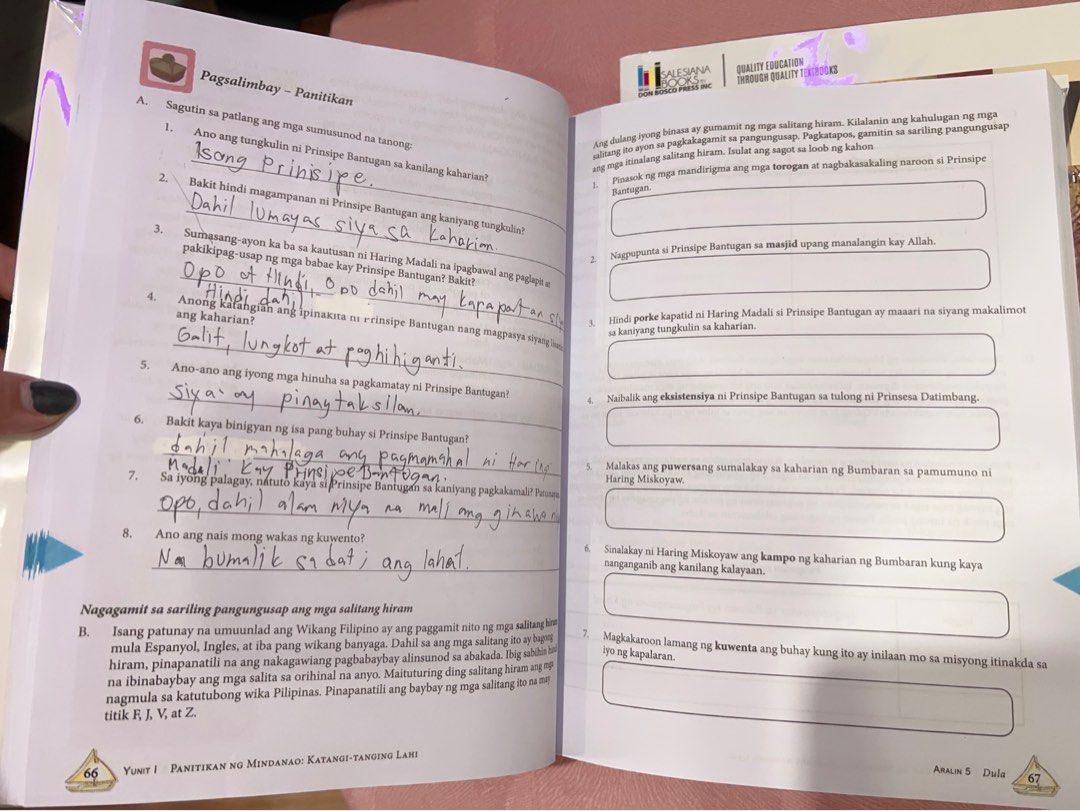 Pagsalimbay – Panitikan
A. Sagutin sa patlang ang mga sumusunod na tanong:
1. Ano ang tungkulin ni Prinsipe Bantugan sa kanilang kaharian?
Isang Prinisipe.
2. Bakit hindi magampanan ni Prinsipe Bantugan ang kaniyang tungkulin?
Dahil lumayas siya sa kaharian.
3. Sumasang-ayon ka ba sa kautusan ni Haring Madali na ipagbawal ang paglapit at
pakikipag-usap ng mga babae kay Prinsipe Bantugan? Bakit?
Opo at Hindi, Opo dahil may kapapartan
Hindi dahil
4. Anong katangian ang ipinakita ni Prinsipe Bantugan nang magpasya siyang
ang kaharian?
Galit, lungkot at paghihiganti.
5. Ano-ano ang iyong mga hinuha sa pagkamatay ni Prinsipe Bantugan?
Siya ay pinagtaksilan.
6. Bakit kaya binigyan ng isa pang buhay si Prinsipe Bantugan?
dahil mahalaga ang pagmamahal ni Haring
Madali kay Prinsipe Bantugan.
7. Sa iyong palagay, natuto kaya si Prinsipe Bantugan sa kaniyang pagkakamali?
Opo, dahil alam niya na mali ang
8. Ano ang nais mong wakas ng kuwento?
Na bumalik sa dati ang lahat.
Nagagamit sa sariling pangungusap ang mga salitang hiram
B. Isang patunay na umuunlad ang Wikang Filipino ay ang paggamit nito ng mga salitang hiram
mula Espanyol, Ingles, at iba pang wikang banyaga. Dahil sa ang mga salitang ito ay bagong
hiram, pinapanatili na ang nakagawiang pagbabaybay alinsunod sa abakada. Ibig sabihin
na ibinabaybay ang mga salita sa orihinal na anyo. Maituturing ding salitang hiram ang mga
nagmula sa katutubong wika Pilipinas. Pinapanatili ang baybay ng mga salitang ito na may
titik F, J, V, at Z.
66 YUNIT I PANITIKAN NG MINDANAO: KATANGI-TANGING LAHI
SALESIANA
BOOKS BY
DON BOSCO PRESS INC
QUALITY EDUCATION
THROUGH QUALITY TEXTBOOKS
Ang dulang iyong binasa ay gumamit ng mga salitang hiram. Kilalanin ang kahulugan ng mga
salitang ito ayon sa pagkakagamit sa pangungusap. Pagkatapos, gamitin sa sariling pangungusap
ang mga itinalang salitang hiram. Isulat ang sagot sa loob ng kahon
1. Pinasok ng mga mandirigma ang mga torogan at nagbakasakaling naroon si Prinsipe
Bantugan.
2. Nagpupunta si Prinsipe Bantugan sa masjid upang manalangin kay Allah.
3. Hindi porke kapatid ni Haring Madali si Prinsipe Bantugan ay maaari na siyang makalimot
sa kaniyang tungkulin sa kaharian.
4. Naibalik ang eksistensiya ni Prinsipe Bantugan sa tulong ni Prinsesa Datimbang.
5. Malakas ang puwersang sumalakay sa kaharian ng Bumbaran sa pamumuno ni
Haring Miskoyaw.
6. Sinalakay ni Haring Miskoyaw ang kampo ng kaharian ng Bumbaran kung kaya
nanganganib ang kanilang kalayaan.
7. Magkakaroon lamang ng kuwenta ang buhay kung ito ay inilaan mo sa misyong itinakda sa
iyo ng kapalaran.
ARALIN 5 Dula 67